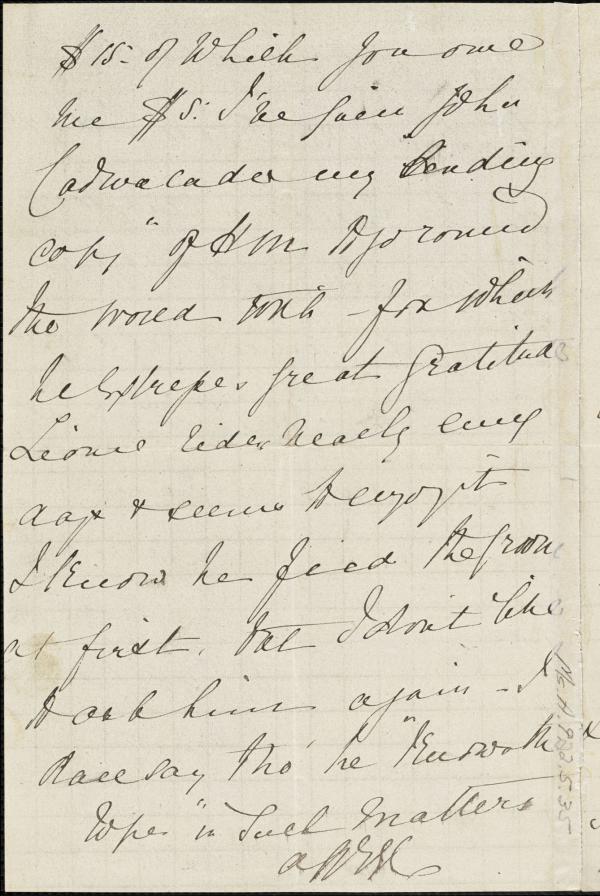 $15- of which you owe
me $5: I've given John
Cadwalader my "lending
copy" of H M to go round
the world with - for which
he expresses great gratitude
Leonie rides nearly every
day & seems to enjoy it
I know he fee'd the groom
at first, but I don't like
to ask him again - I
dare say tho' he "knows the
ropes" in such matters
MS.H.1922.5.35